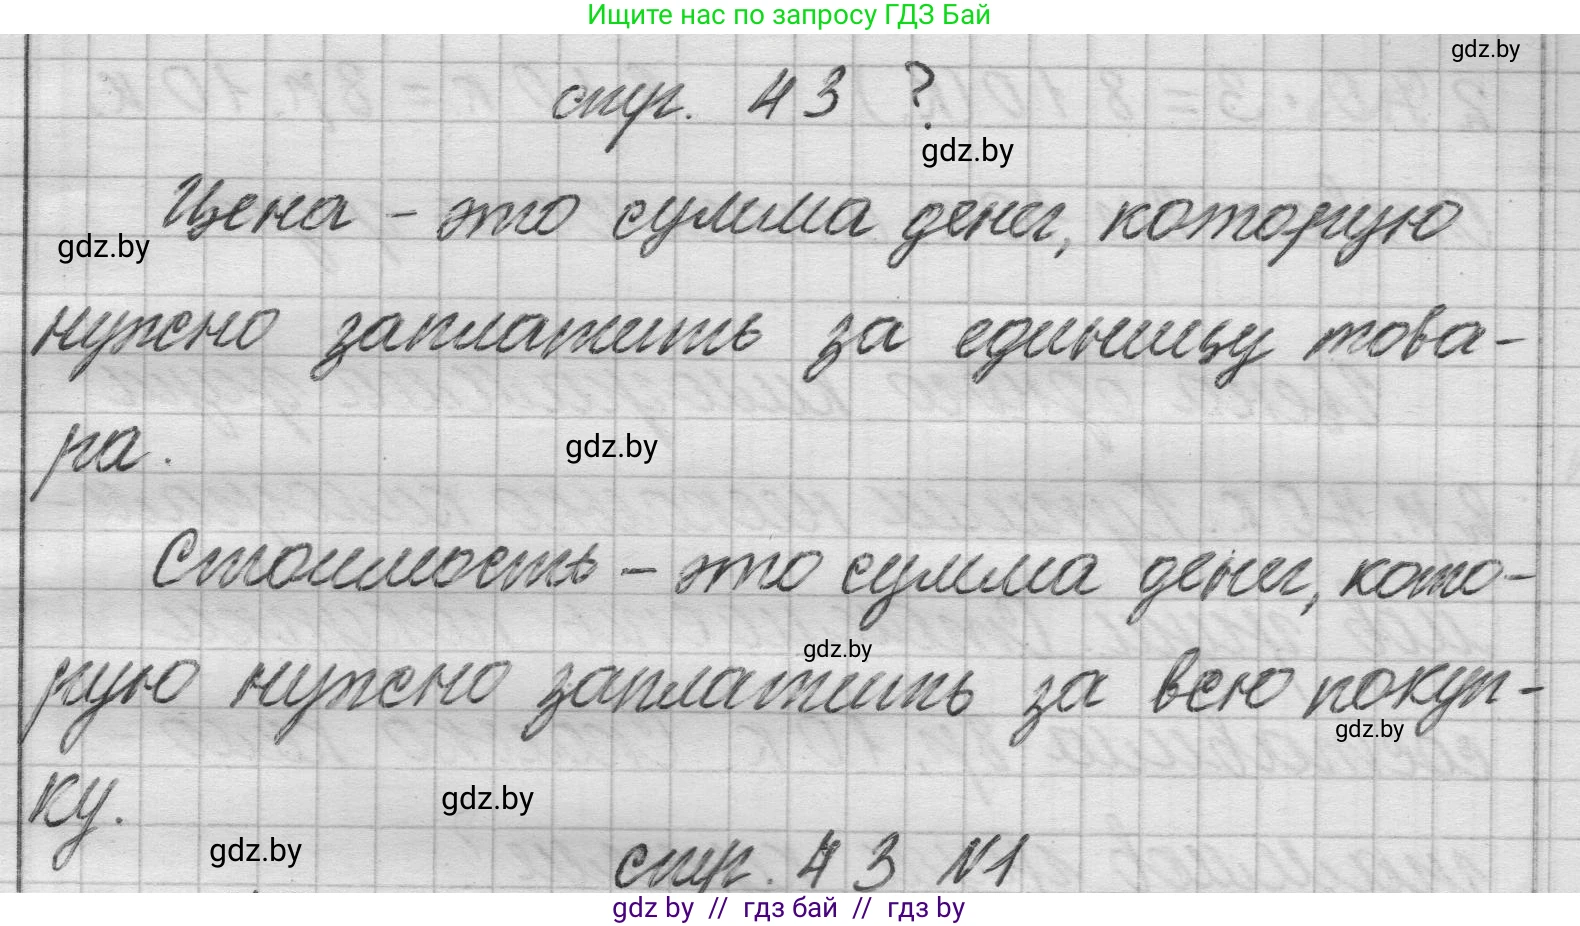 Ищите нас по запросу ГДЗ Бай
gdz.by
стр. 43 ?
gdz.by
Цена – это сумма денег, которую
gdz.by
нужно заплатить за единицу това-
ра.
gdz.by
Стоимость – это сумма денег, кото-
рую нужно заплатить за всю покуп-
gdz.by
gdz.by
ку.
gdz.by
gdz.by
стр. 43 №1
gdz by // гдз бай // гдз by